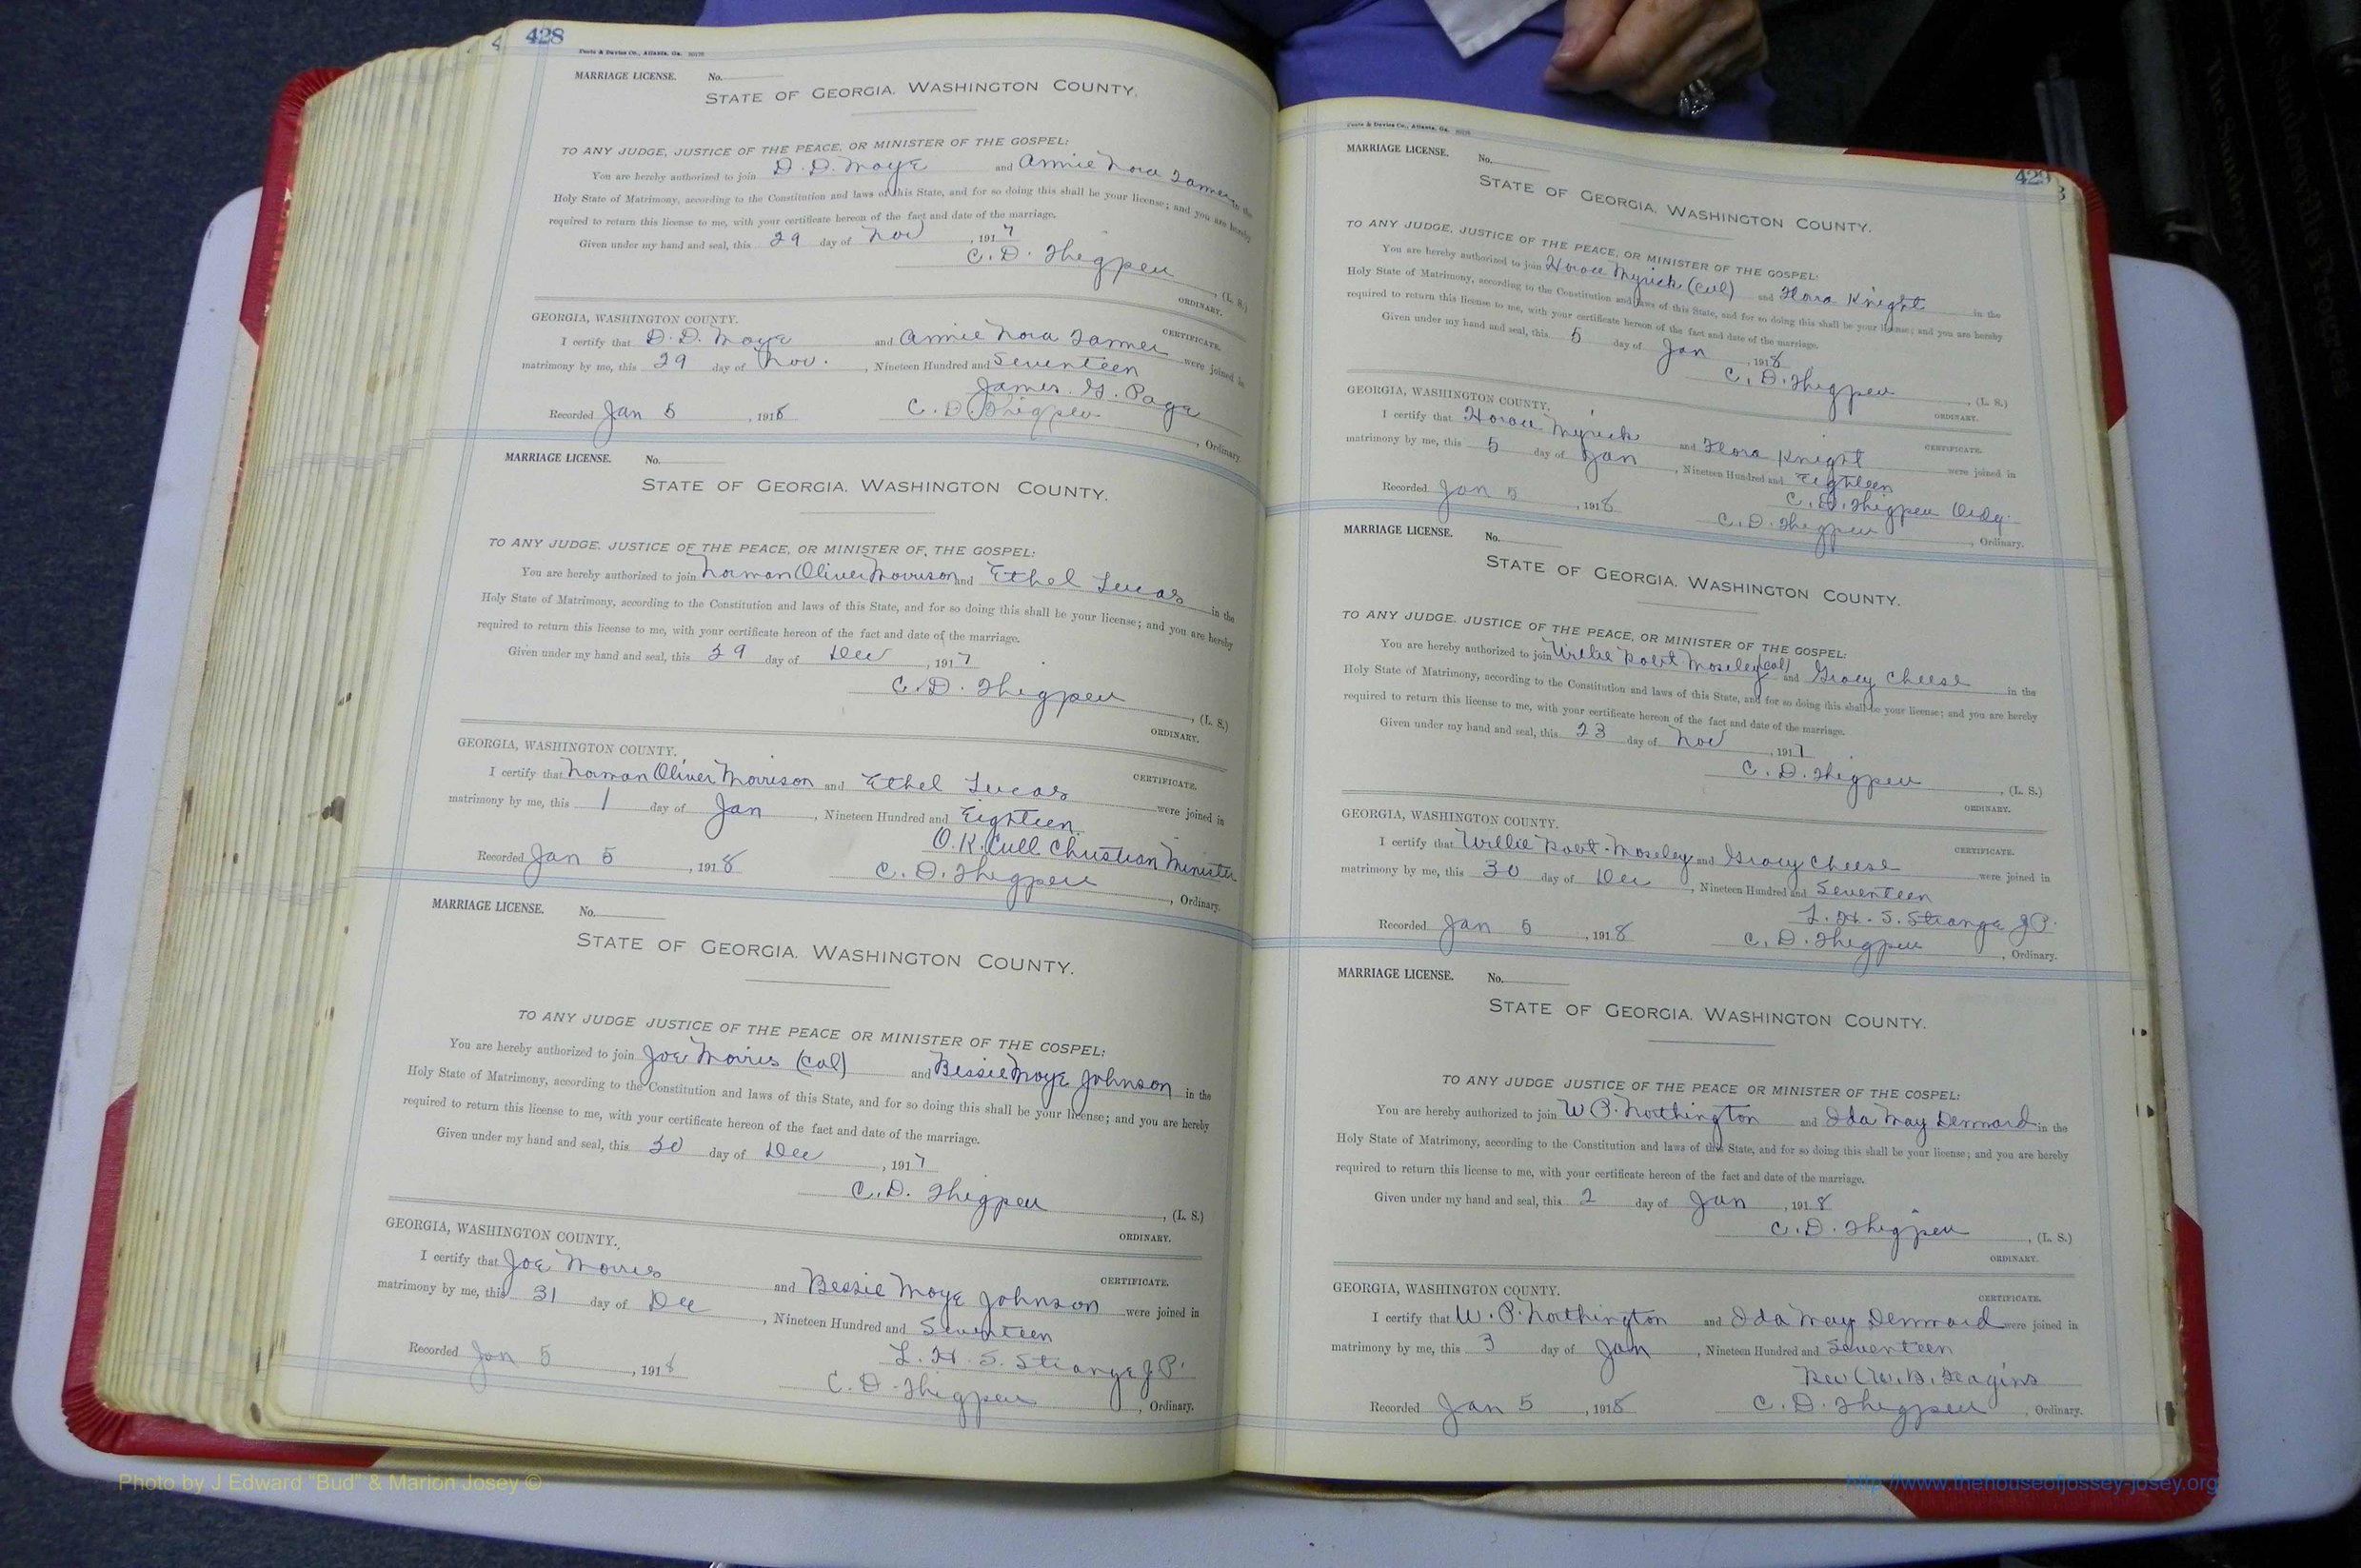 428
Foote & Davies Co., Atlanta, Ga.
MARRIAGE LICENSE. No.
STATE OF GEORGIA. WASHINGTON COUNTY.
TO ANY JUDGE, JUSTICE OF THE PEACE, OR MINISTER OF THE GOSPEL:
You are hereby authorized to join D. D. Moye and Annie Nora Tanner in the
Holy State of Matrimony, according to the Constitution and laws of this State, and for so doing this shall be your license; and you are hereby
required to return this license to me, with your certificate hereon of the fact and date of the marriage.
Given under my hand and seal, this 29 day of Nov , 1917
C. D. Thigpen , (L. S.)
ORDINARY.
GEORGIA, WASHINGTON COUNTY. CERTIFICATE.
I certify that D. D. Moye and Annie Nora Tanner were joined in
matrimony by me, this 29 day of Nov. , Nineteen Hundred and Seventeen
James. G. Page
Recorded Jan 5 , 1918 C. D. Thigpen , Ordinary.
MARRIAGE LICENSE. No.
STATE OF GEORGIA. WASHINGTON COUNTY.
TO ANY JUDGE, JUSTICE OF THE PEACE, OR MINISTER OF THE GOSPEL:
You are hereby authorized to join Norman Oliver Morrison and Ethel Lucas in the
Holy State of Matrimony, according to the Constitution and laws of this State, and for so doing this shall be your license; and you are hereby
required to return this license to me, with your certificate hereon of the fact and date of the marriage.
Given under my hand and seal, this 29 day of Dec , 1917
C. D. Thigpen , (L. S.)
ORDINARY.
GEORGIA, WASHINGTON COUNTY. CERTIFICATE.
I certify that Norman Oliver Morrison and Ethel Lucas were joined in
matrimony by me, this 1 day of Jan , Nineteen Hundred and Eighteen
O. K. Cull Christian Minister
Recorded Jan 5 , 1918 C. D. Thigpen , Ordinary.
MARRIAGE LICENSE. No.
STATE OF GEORGIA. WASHINGTON COUNTY.
TO ANY JUDGE JUSTICE OF THE PEACE OR MINISTER OF THE GOSPEL:
You are hereby authorized to join Joe Morris (Col) and Bessie Moye Johnson in the
Holy State of Matrimony, according to the Constitution and laws of this State, and for so doing this shall be your license; and you are hereby
required to return this license to me, with your certificate hereon of the fact and date of the marriage.
Given under my hand and seal, this 30 day of Dec , 1917
C. D. Thigpen , (L. S.)
ORDINARY.
GEORGIA, WASHINGTON COUNTY. CERTIFICATE.
I certify that Joe Morris and Bessie Moye Johnson were joined in
matrimony by me, this 31 day of Dec , Nineteen Hundred and Seventeen
L. H. S. Strange J P.
Recorded Jan 5 , 1918 C. D. Thigpen , Ordinary.
429
Foote & Davies Co., Atlanta, Ga.
MARRIAGE LICENSE. No.
STATE OF GEORGIA. WASHINGTON COUNTY.
TO ANY JUDGE, JUSTICE OF THE PEACE, OR MINISTER OF THE GOSPEL:
You are hereby authorized to join Horace Myrick (Col) and Flora Knight in the
Holy State of Matrimony, according to the Constitution and laws of this State, and for so doing this shall be your license; and you are hereby
required to return this license to me, with your certificate hereon of the fact and date of the marriage.
Given under my hand and seal, this 5 day of Jan , 1918
C. D. Thigpen , (L. S.)
ORDINARY.
GEORGIA, WASHINGTON COUNTY. CERTIFICATE.
I certify that Horace Myrick and Flora Knight were joined in
matrimony by me, this 5 day of Jan , Nineteen Hundred and Eighteen
C. D. Thigpen Ordy.
Recorded Jan 5 , 1918 C. D. Thigpen , Ordinary.
MARRIAGE LICENSE. No.
STATE OF GEORGIA. WASHINGTON COUNTY.
TO ANY JUDGE, JUSTICE OF THE PEACE, OR MINISTER OF THE GOSPEL:
You are hereby authorized to join Willie Robt Moseley (Col) and Gracy Cheese in the
Holy State of Matrimony, according to the Constitution and laws of this State, and for so doing this shall be your license; and you are hereby
required to return this license to me, with your certificate hereon of the fact and date of the marriage.
Given under my hand and seal, this 23 day of Nov , 1917
C. D. Thigpen , (L. S.)
ORDINARY.
GEORGIA, WASHINGTON COUNTY. CERTIFICATE.
I certify that Willie Robt. Moseley and Gracy Cheese were joined in
matrimony by me, this 30 day of Dec , Nineteen Hundred and Seventeen
L. H. S. Strange J P.
Recorded Jan 5 , 1918 C. D. Thigpen , Ordinary.
MARRIAGE LICENSE. No.
STATE OF GEORGIA. WASHINGTON COUNTY.
TO ANY JUDGE JUSTICE OF THE PEACE OR MINISTER OF THE GOSPEL:
You are hereby authorized to join W P. Northington and Ida May Denmard in the
Holy State of Matrimony, according to the Constitution and laws of this State, and for so doing this shall be your license; and you are hereby
required to return this license to me, with your certificate hereon of the fact and date of the marriage.
Given under my hand and seal, this 2 day of Jan , 1918
C. D. Thigpen , (L. S.)
ORDINARY.
GEORGIA, WASHINGTON COUNTY. CERTIFICATE.
I certify that W. P. Northington and Ida May Denmard were joined in
matrimony by me, this 3 day of Jan , Nineteen Hundred and Seventeen
Rev W. D.
Recorded Jan 5 , 1918 C. D. Thigpen , Ordinary.
Photo by J Edward "Bud" & Marion Josey ©
http://www.thehouseofjossey-josey.org